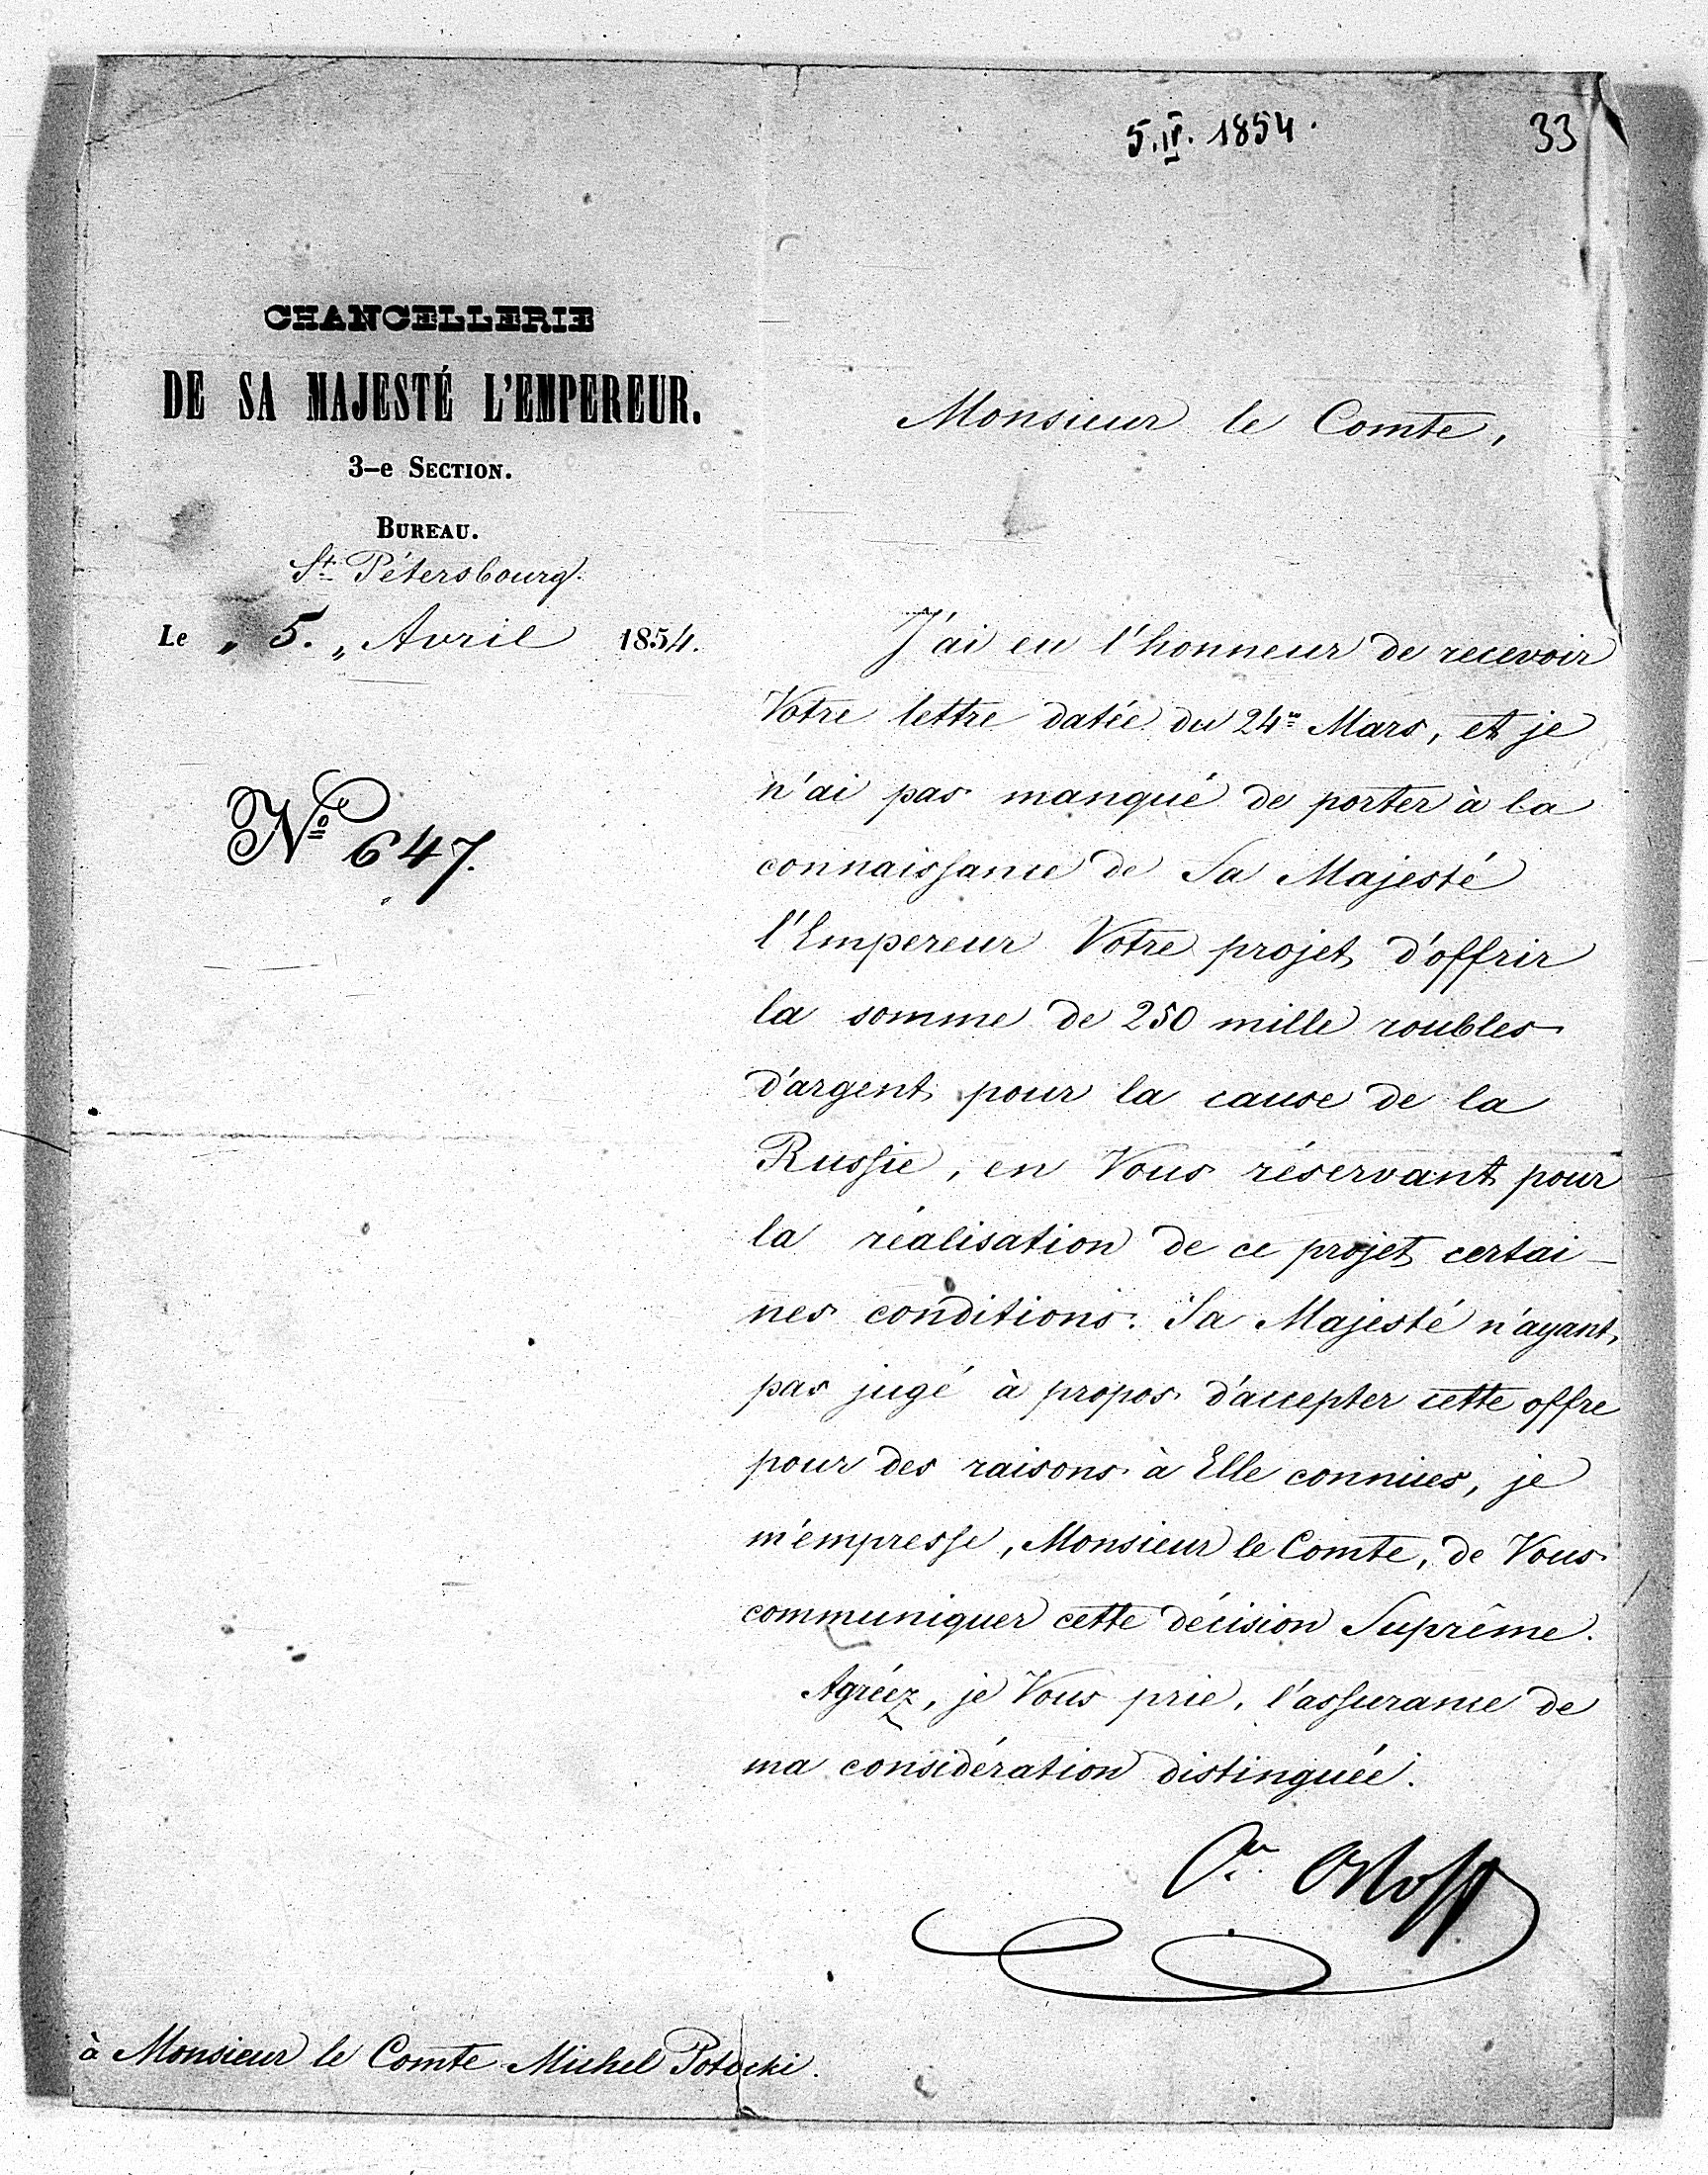 5.IV. 1854.
33
CHANCELLERIE
DE SA MAJESTÉ L'EMPEREUR.
3-e SECTION.
BUREAU.
St Pétersbourg.
Le „ 5. „ Avril 1854.
No 647.
Monsieur le Comte,
J'ai eu l'honneur de recevoir
Votre lettre datée du 24 Mars, et je
n'ai pas manqué de porter à la
connaissance de Sa Majesté
l'Empereur Votre projet d'offrir
la somme de 250 mille roubles
d'argent pour la cause de la
Russie, en Vous réservant pour
la réalisation de ce projet certai-
nes conditions. Sa Majesté n'ayant
pas jugé à propos d'accepter cette offre
pour des raisons à Elle connues, je
m'empresse, Monsieur le Comte, de Vous
communiquer cette décision Suprême.
Agréez, je Vous prie, l'assurance de
ma considération distinguée.
Orloff
à Monsieur le Comte Michel Potocki.